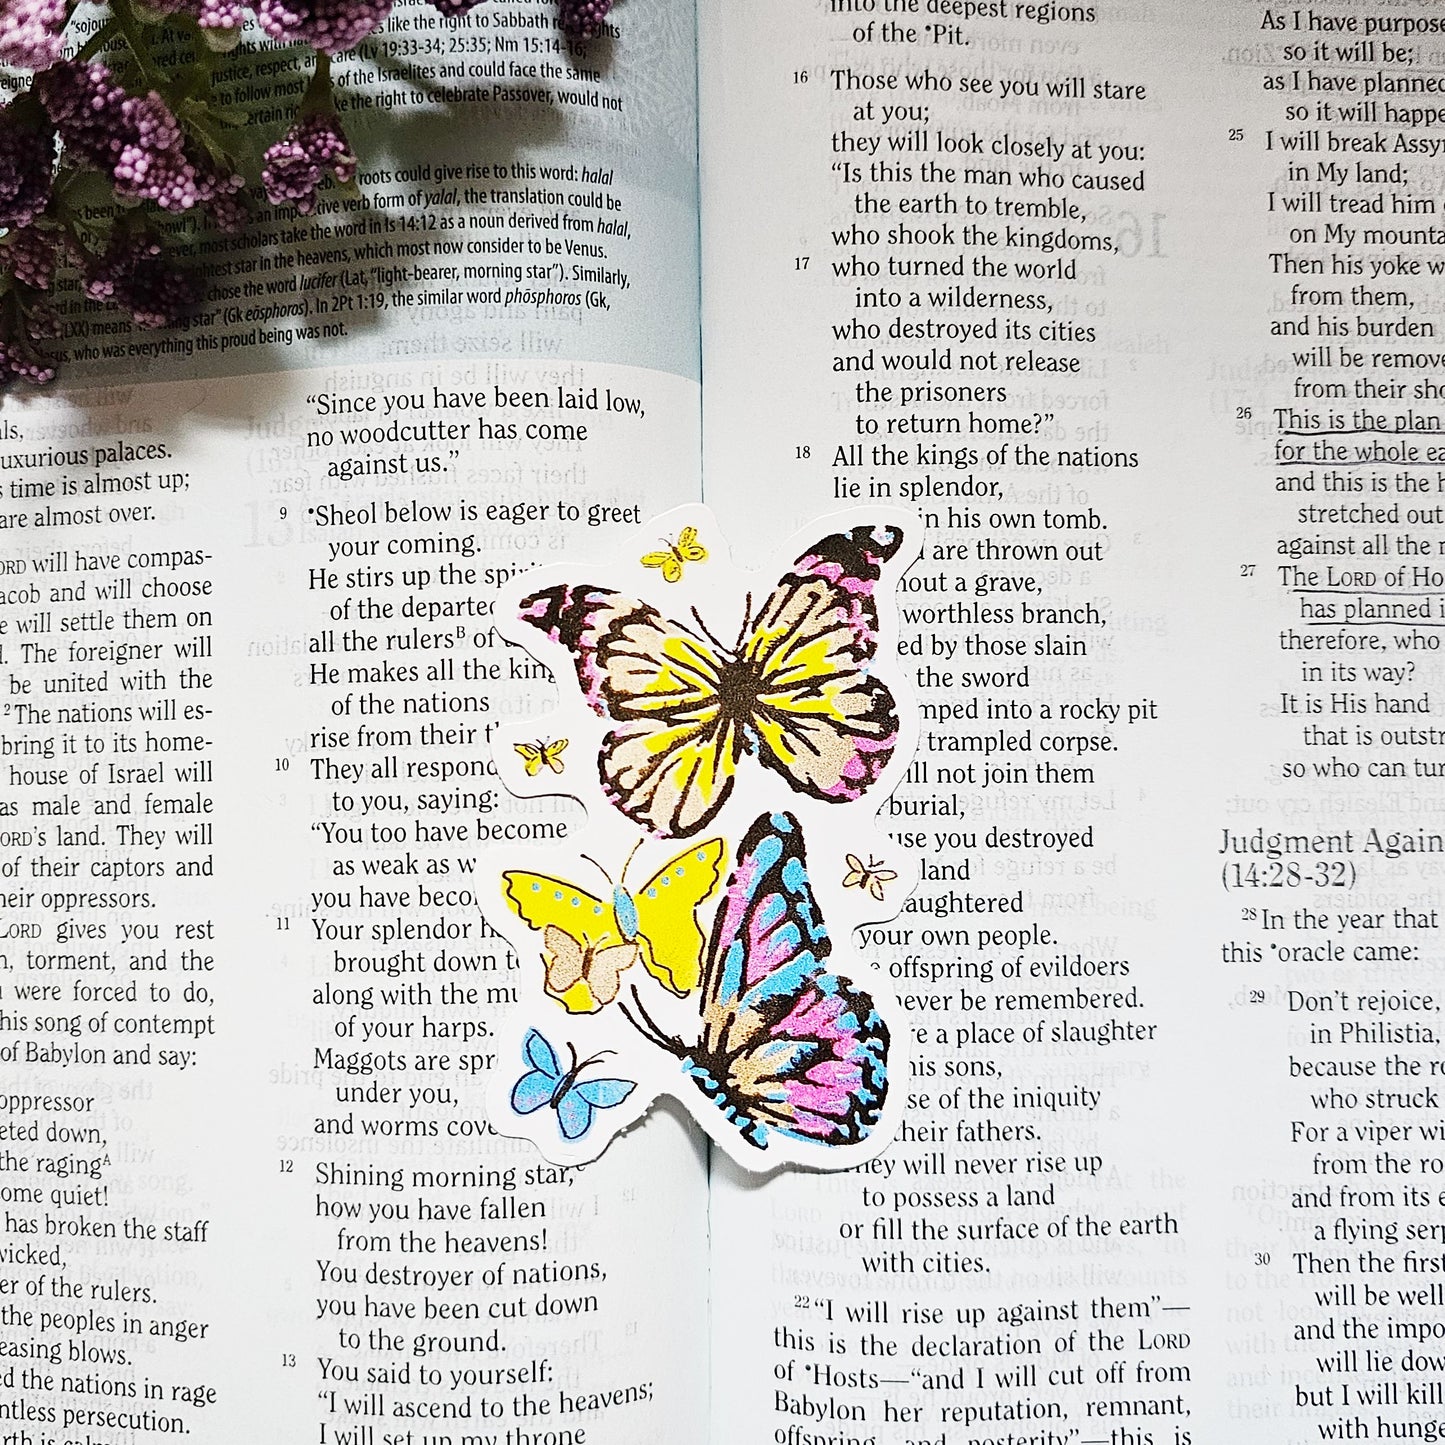 like the right to Sabbath
care (Lv 19:33-34; 25:35; Nm 15:14-16;
justice, respect, an
of the Israelites and could face the same
to follow most
ke the right to celebrate Passover, would not
ertain
roots could give rise to this word: halal
tive verb form of yalal, the translation could be
most scholars take the word in Is 14:12 as a noun derived from halal,
htest star in the heavens, which most now consider to be Venus.
chose the word lucifer (Lat, "light-bearer, morning star"). Similarly,
star" (Gk eōsphoros). In 2Pt 1:19, the similar word phōsphoros (Gk,
(LXX) means
sus, who was everything this proud being was not.
ls,
uxurious palaces.
s time is almost up;
are almost over.
ORD will have compas-
acob and will choose
e will settle them on
l. The foreigner will
be united with the
2 The nations will es-
bring it to its home-
house of Israel will
as male and female
ORD's land. They will
of their captors and
heir oppressors.
LORD gives you rest
n, torment, and the
were forced to do,
his song of contempt
of Babylon and say:
oppressor
eted down,
the raging A
ome quiet!
has broken the staff
wicked,
er of the rulers.
the peoples in anger
easing blows.
ed the nations in rage
ntless persecution.
"Since you have been laid low,
no woodcutter has come
against us."
9 •Sheol below is eager to greet
your coming.
He stirs up the spi
of the departed
all the rulers B of
He makes all the king
of the nations
rise from their t
10 They all respond
to you, saying:
"You too have become
as weak as w
you have beco
11 Your splendor h
brought down to
along with the mu
of your harps.
Maggots are spr
under you,
and worms cove
12 Shining morning star, C
how you have fallen
from the heavens!
You destroyer of nations,
you have been cut down
to the ground.
13 You said to yourself:
"I will ascend to the heavens;
I will set up my throne
into the deepest regions
of the •Pit.
16 Those who see you will stare
at you;
they will look closely at you:
"Is this the man who caused
the earth to tremble,
who shook the kingdoms,
17 who turned the world
into a wilderness,
who destroyed its cities
and would not release
the prisoners
to return home?"
18 All the kings of the nations
lie in splendor,
in his own tomb.
are thrown out
hout a grave,
worthless branch,
ed by those slain
the sword
mped into a rocky pit
trampled corpse.
ill not join them
burial,
use you destroyed
land
laughtered
your own people.
offspring of evildoers
never be remembered.
re a place of slaughter
his sons,
se of the iniquity
their fathers.
They will never rise up
to possess a land
or fill the surface of the earth
with cities.
22 "I will rise up against them"—
this is the declaration of the LORD
of •Hosts—"and I will cut off from
Babylon her reputation, remnant,
offspring, and posterity"—this is
As I have purpose
so it will be;
as I have planned
so it will happe
25 I will break Assy
in My land;
I will tread him
on My mounta
Then his yoke w
from them,
and his burden
will be remove
from their sho
26 This is the plan
for the whole ea
and this is the h
stretched out
against all the n
27 The LORD of Ho
has planned i
therefore, who
in its way?
It is His hand
that is outstr
so who can tur
Judgment Again
(14:28-32)
28 In the year that
this •oracle came:
29 Don't rejoice,
in Philistia,
because the ro
who struck
For a viper wi
from the ro
and from its e
a flying serp
30 Then the first
will be well
and the impo
will lie dow
but I will kill
with hunge